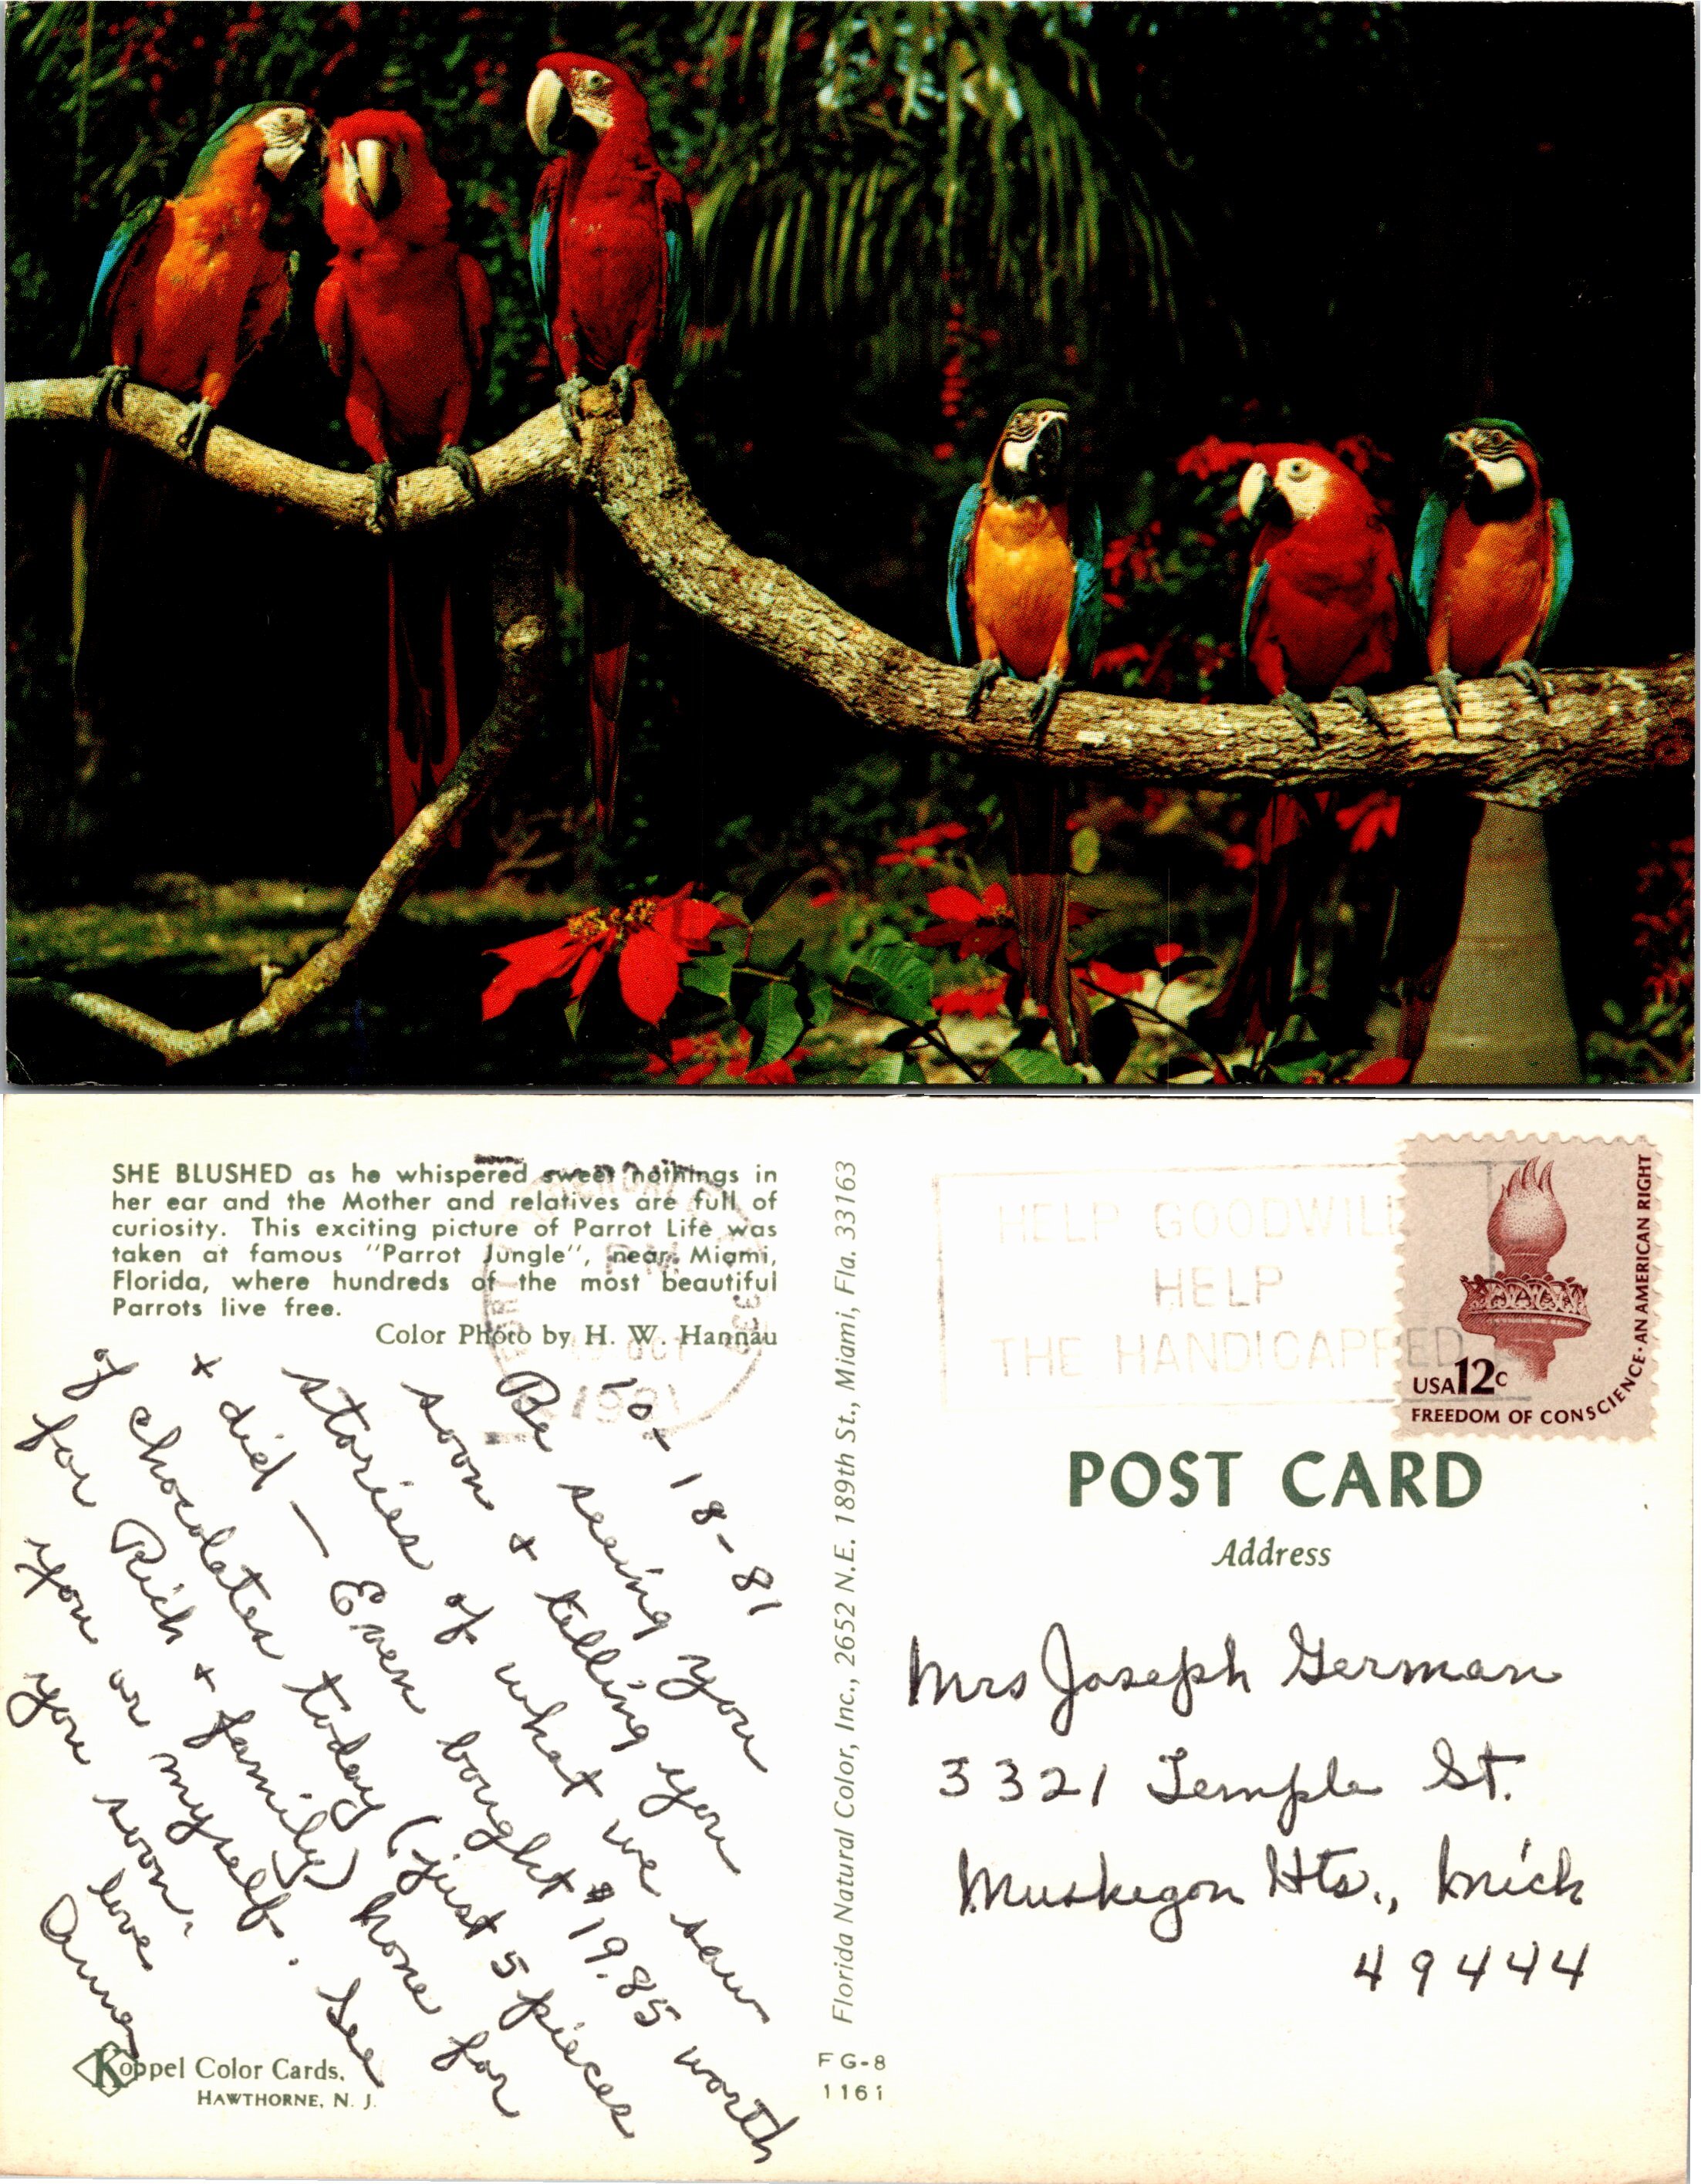 SHE BLUSHED as he whispered sweet nothings in
her ear and the Mother and relatives are full of
curiosity. This exciting picture of Parrot Life was
taken at famous "Parrot Jungle", near Miami,
Florida, where hundreds of the most beautiful
Parrots live free.
Color Photo by H. W. Hannau
PM
OCT
1981
10-18-81
Be seeing you
soon + telling you
stories of what we saw
+ did — Even bought $19.85 worth
of chocolates today (just 5 pieces
for Rich + family) none for
you or myself. See
you soon.
love
Anne
Koppel Color Cards.
HAWTHORNE, N. J.
Florida Natural Color, Inc., 2652 N.E. 189th St., Miami, Fla. 33163
FG-8
116i
HELP GOODWILL
HELP
THE HANDICAPPED
USA 12c
FREEDOM OF CONSCIENCE • AN AMERICAN RIGHT
POST CARD
Address
Mrs Joseph German
3321 Temple St.
Muskegon Hts., Mich
49444